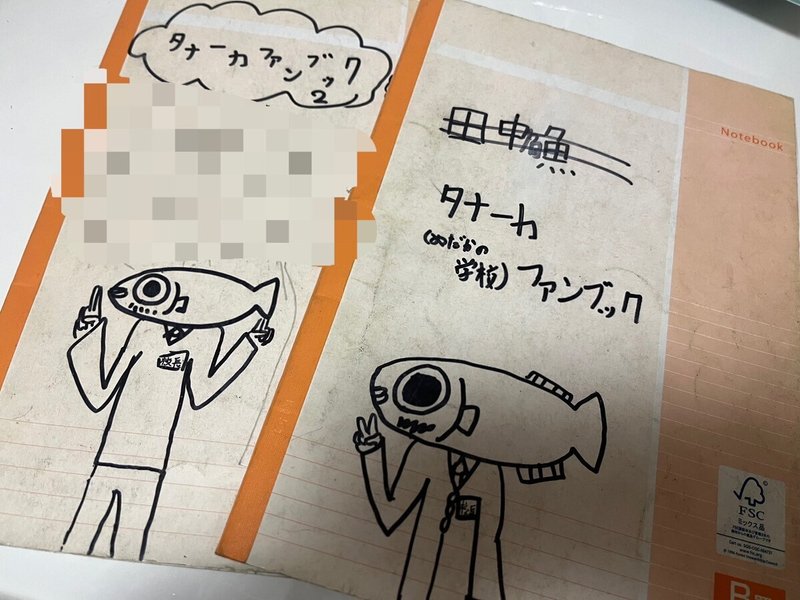 タナーカファンブック
2
校長
Notebook
田中魚
タナーカ
(めだかの
学校)ファンブック
校長
FSC
ミックス品
www.fsc.org
B